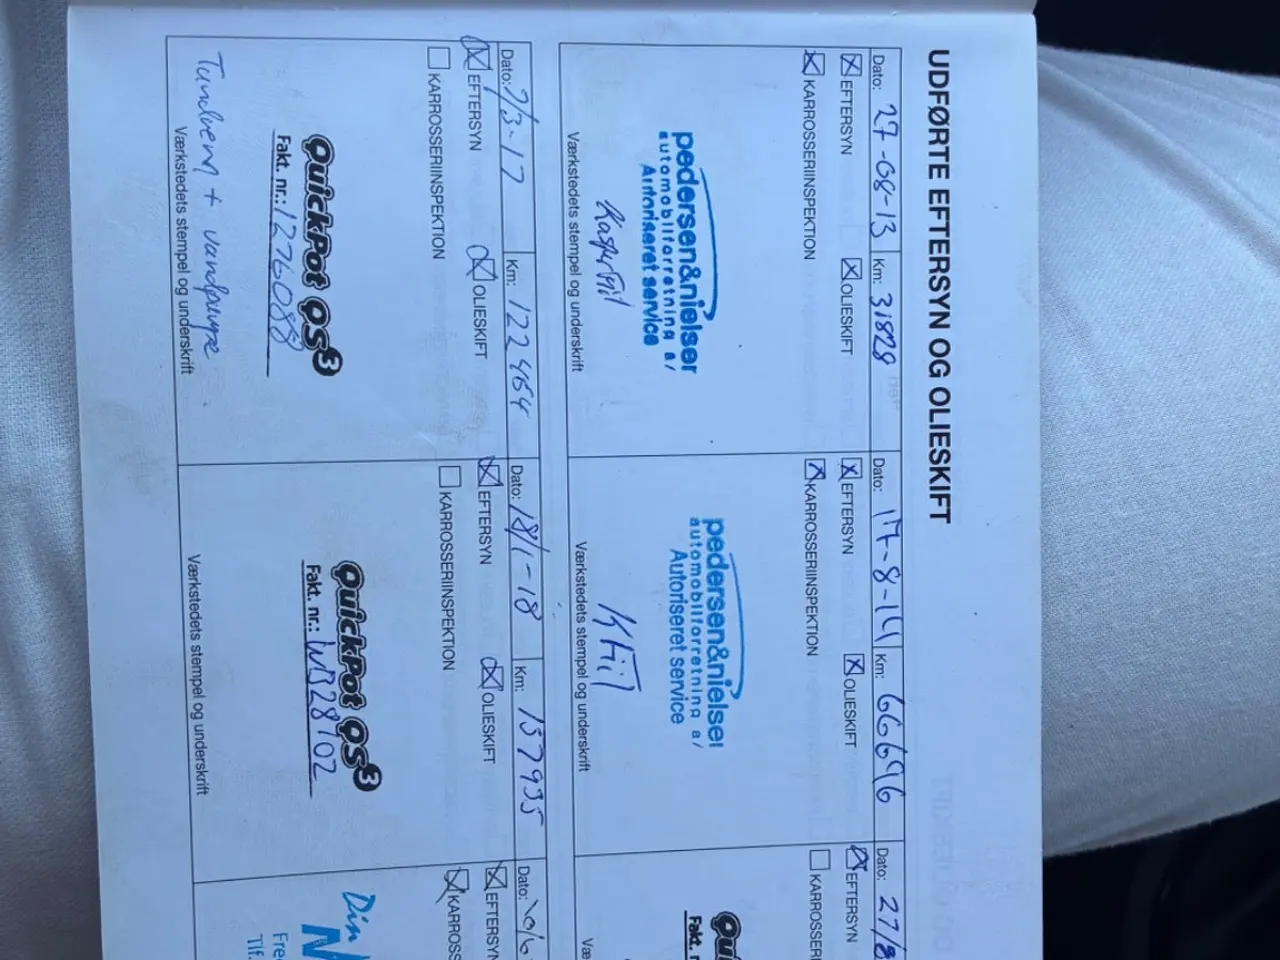 UDFØRTE EFTERSYN OG OLIESKIFT
Dato: 27-08-13 Km: 31828
EFTERSYN OLIESKIFT
KARROSSERIINSPEKTION
pedersen&nielsen
automobilforretning a/
Autoriseret service
Værkstedets stempel og underskrift
Dato: 17-8-14 Km: 66696
EFTERSYN OLIESKIFT
KARROSSERIINSPEKTION
pedersen&nielsen
automobilforretning a/
Autoriseret service
Værkstedets stempel og underskrift
Dato: 27/8
EFTERSYN
KARROSSERI
Qui
Fakt. n
Væ
Dato: 7/3-17 Km: 122464
EFTERSYN OLIESKIFT
KARROSSERIINSPEKTION
QuickPot QS3
Fakt. nr.: 1276088
Tandrem + vandpumpe
Værkstedets stempel og underskrift
Dato: 18/1-18 Km: 157935
EFTERSYN OLIESKIFT
KARROSSERIINSPEKTION
QuickPot QS3
Fakt. nr.: WB28102
Værkstedets stempel og underskrift
Dato: 10/6
EFTERSYN
KARROSS
Din
N
Fre
Tlf.